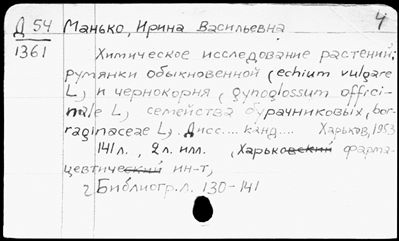 Д 54 Манько, Ирина Васильевна 4
1361 Химическое исследование растений:
румянки обыкновенной (echium vulgare
L) и чернокорня, (gynoglossum offici-
nale L) семейства бурачниковых, bor-
raginaceae L). Дисс.... канд.... Харьков, 1953
141 л., 2 л. илл. , Харьковский фарма-
цевтический ин-т,
Библиогр. л. 130-141